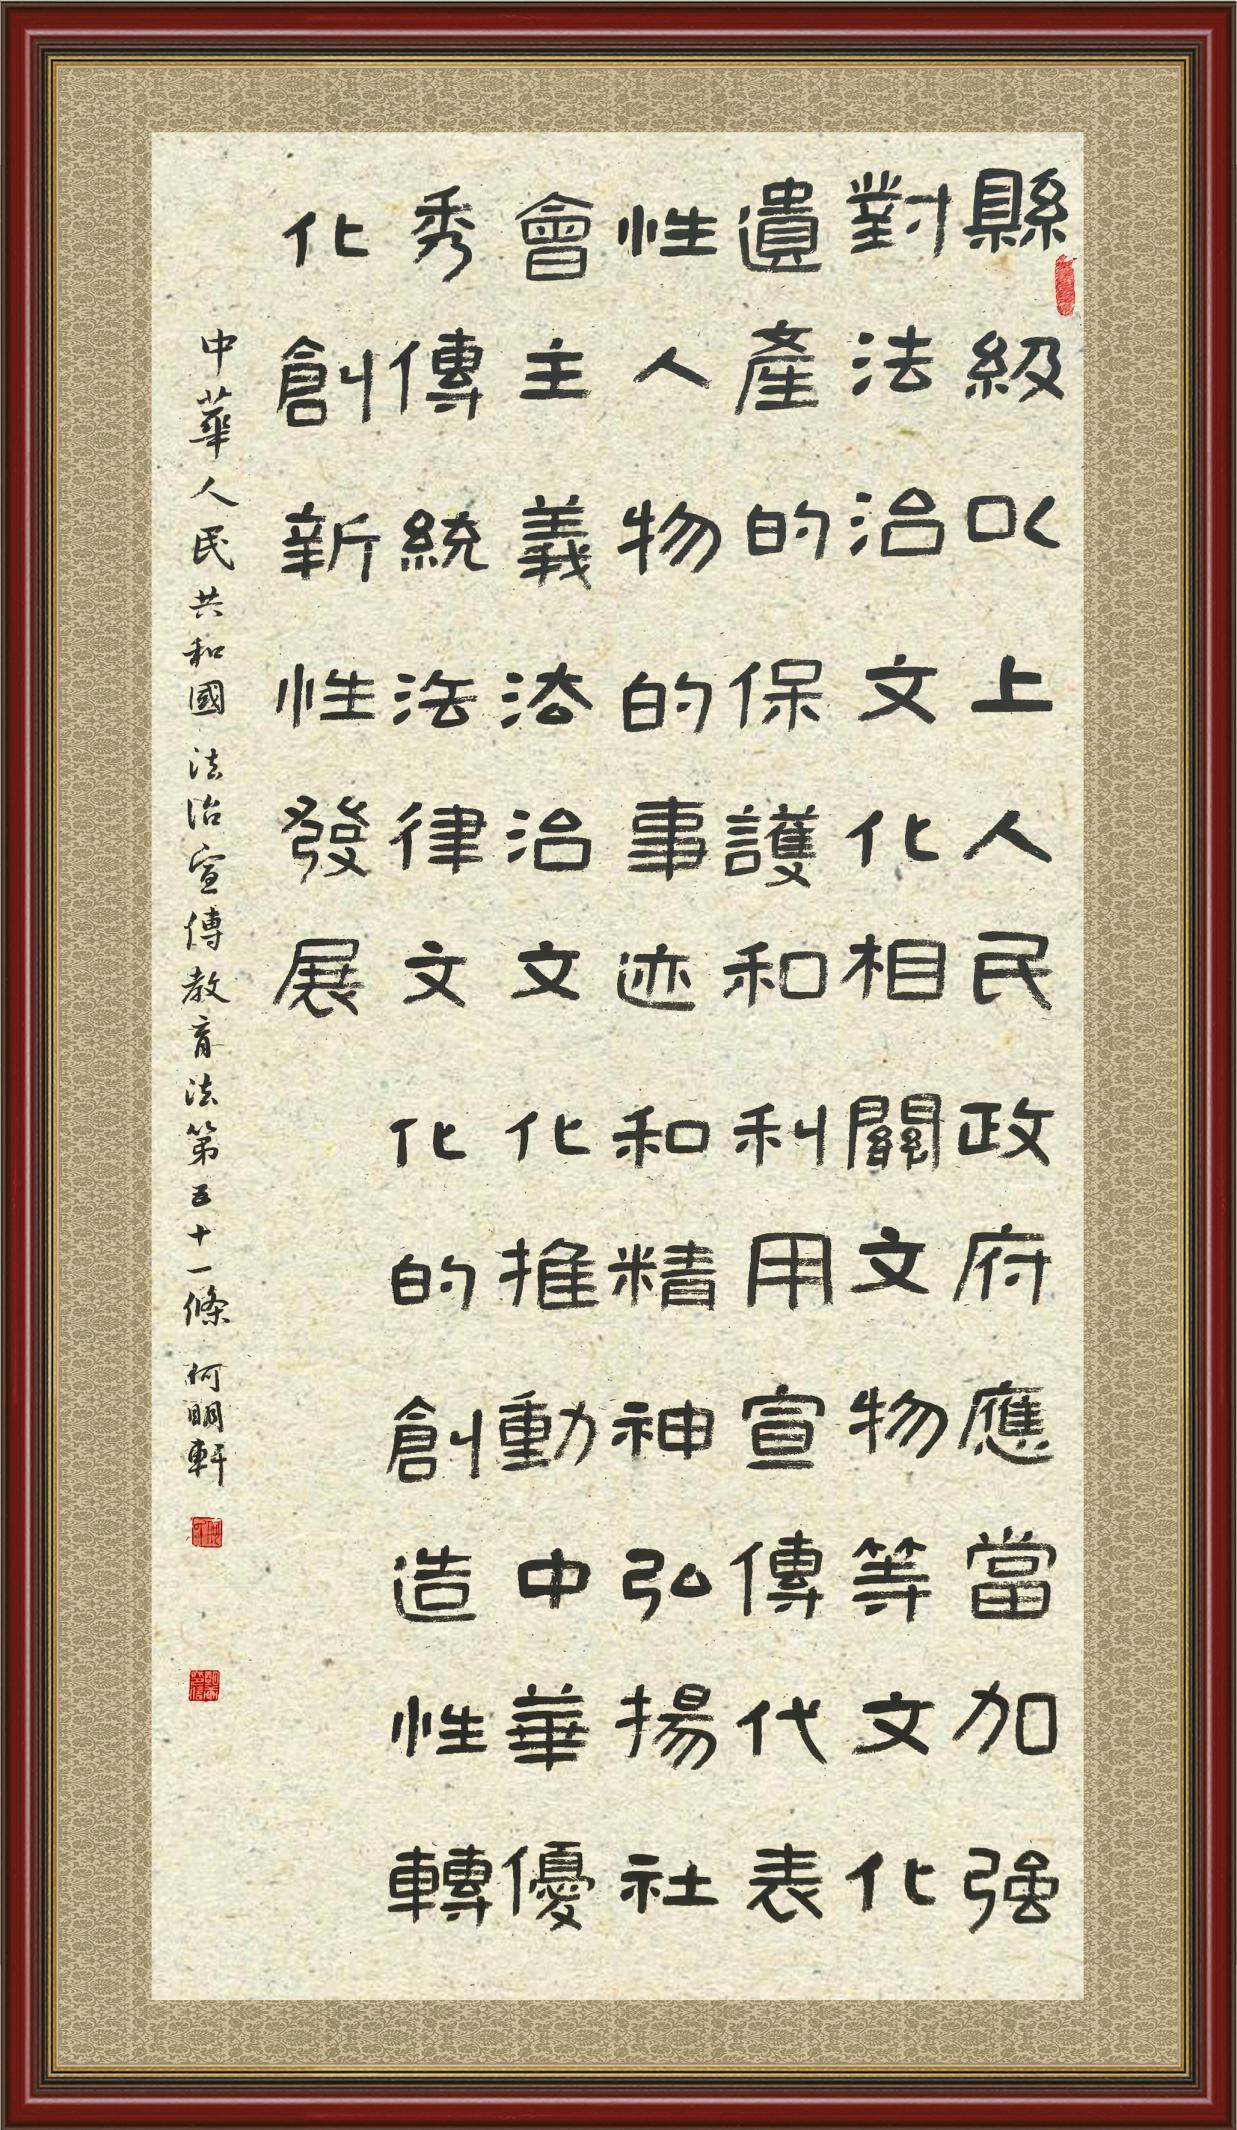 縣級以上人民政府應當加强
對法治文化相關文物等文化
遺產的保護和利用宣傳代表
性人物的事迹和精神弘揚社
會主義法治文化推動中華優
秀傳統法律文化的創造性轉
化創新性發展
中華人民共和國法治宣傳教育法第五十一條 何明軒